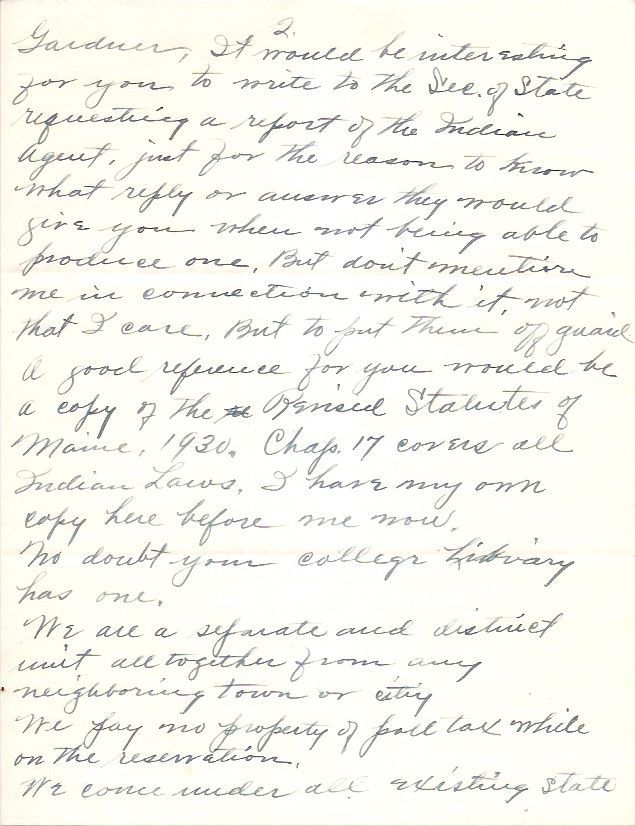 2.
Gardner, It would be interesting
for you to write to the Sec. of State
requesting a report of the Indian
Agent, just for the reason to know
what reply or answer they would
give you when not being able to
produce one. But don't mention
me in connection with it, not
that I care, But to put them off guard
A good reference for you would be
a copy of the Revised Statutes of
Maine, 1930. Chap. 17 covers all
Indian Laws. I have my own
copy here before me now.
No doubt your college Library
has one.
We are a separate and distinct
unit alltogether from any
neighboring town or city
We pay no property of poll tax while
on the reservation.
We come under all existing State